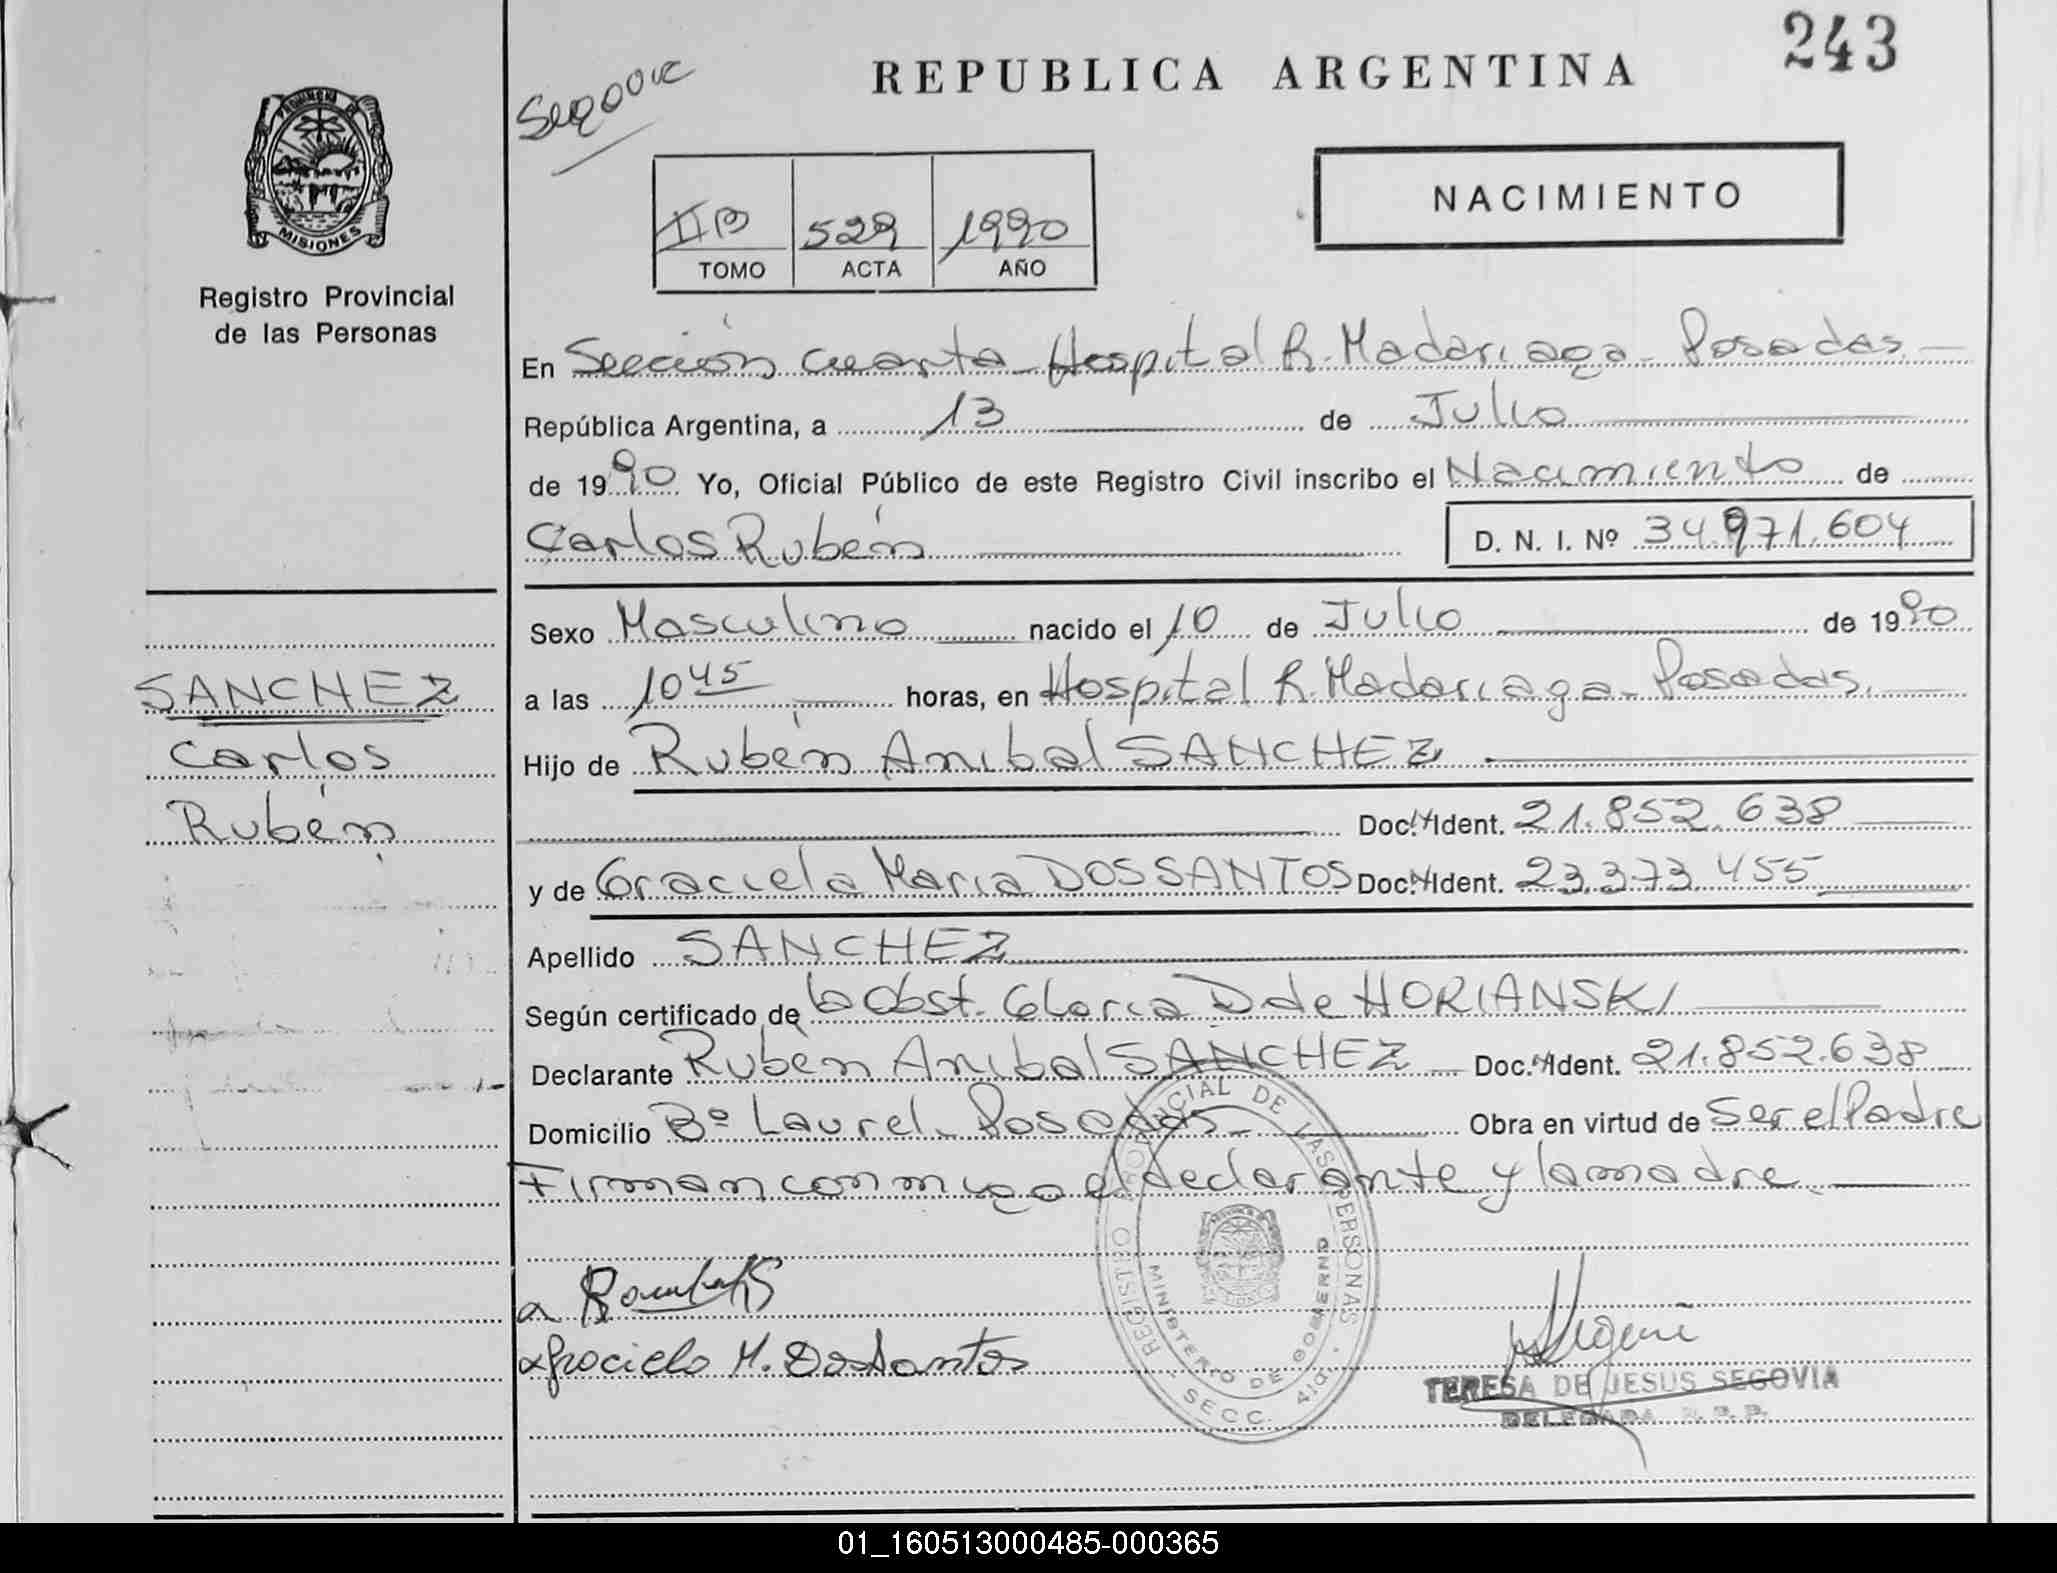 243
REPUBLICA ARGENTINA
NACIMIENTO
PROVINCIA DE
MISIONES
Registro Provincial
de las Personas
IIB 529 1990
TOMO ACTA AÑO
En Sección Cuarta - Hospital R. Madariaga - Posadas -
República Argentina, a 13 de Julio
de 1990 Yo, Oficial Público de este Registro Civil inscribo el Nacimiento de
Carlos Rubén D. N. I. Nº 34.971.604
Sexo Masculino nacido el 10 de Julio de 1990
a las 10 45 horas, en Hospital R. Madariaga - Posadas.
Hijo de Rubén Anibal SANCHEZ
Doc. Ident. 21.852.638
y de Graciela Maria DOS SANTOS Doc. Ident. 23.373.455
Apellido SANCHEZ
Según certificado de la Obst. Gloria D de HORIANSKI
Declarante Rubén Anibal SANCHEZ Doc. Ident. 21.852.638
Domicilio Bº Laurel - Posadas - Obra en virtud de Ser el Padre
Firman conmigo el declarante y la madre.
SANCHEZ
Carlos
Rubén
Graciela M. Dos Santos
REGISTRO PROVINCIAL DE LAS PERSONAS
MINISTERIO DE GOBIERNO
SECC. 4ta.
TERESA DE JESUS SEGOVIA
DELEGADA R. P. P.
01_160513000485-000365